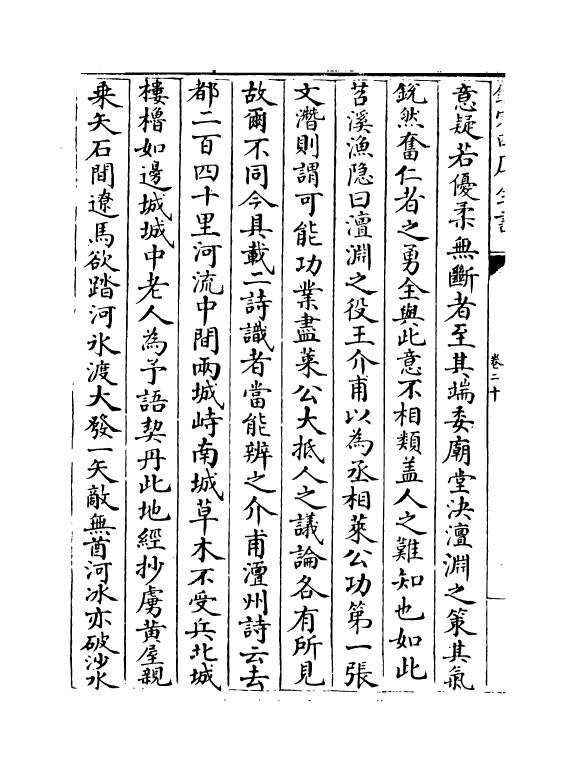 卷二十
意疑若優柔無斷者至其端委廟堂決澶淵之策其氣
銳然奮仁者之勇全與此意不相類盖人之難知也如此
苕溪漁隐曰澶淵之役王介甫以為丞相萊公功第一張
文潛則謂可能功業盡萊公大抵人之議論各有所見
故爾不同今具載二詩識者當能辨之介甫澶州詩云去
都二百四十里河流中間兩城峙南城草木不受兵北城
樓櫓如邊城城中老人為予語契丹此地經抄虜黄屋親
乗矢石間遼馬欲踏河氷渡大發一矢敵無酋河冰亦破沙水